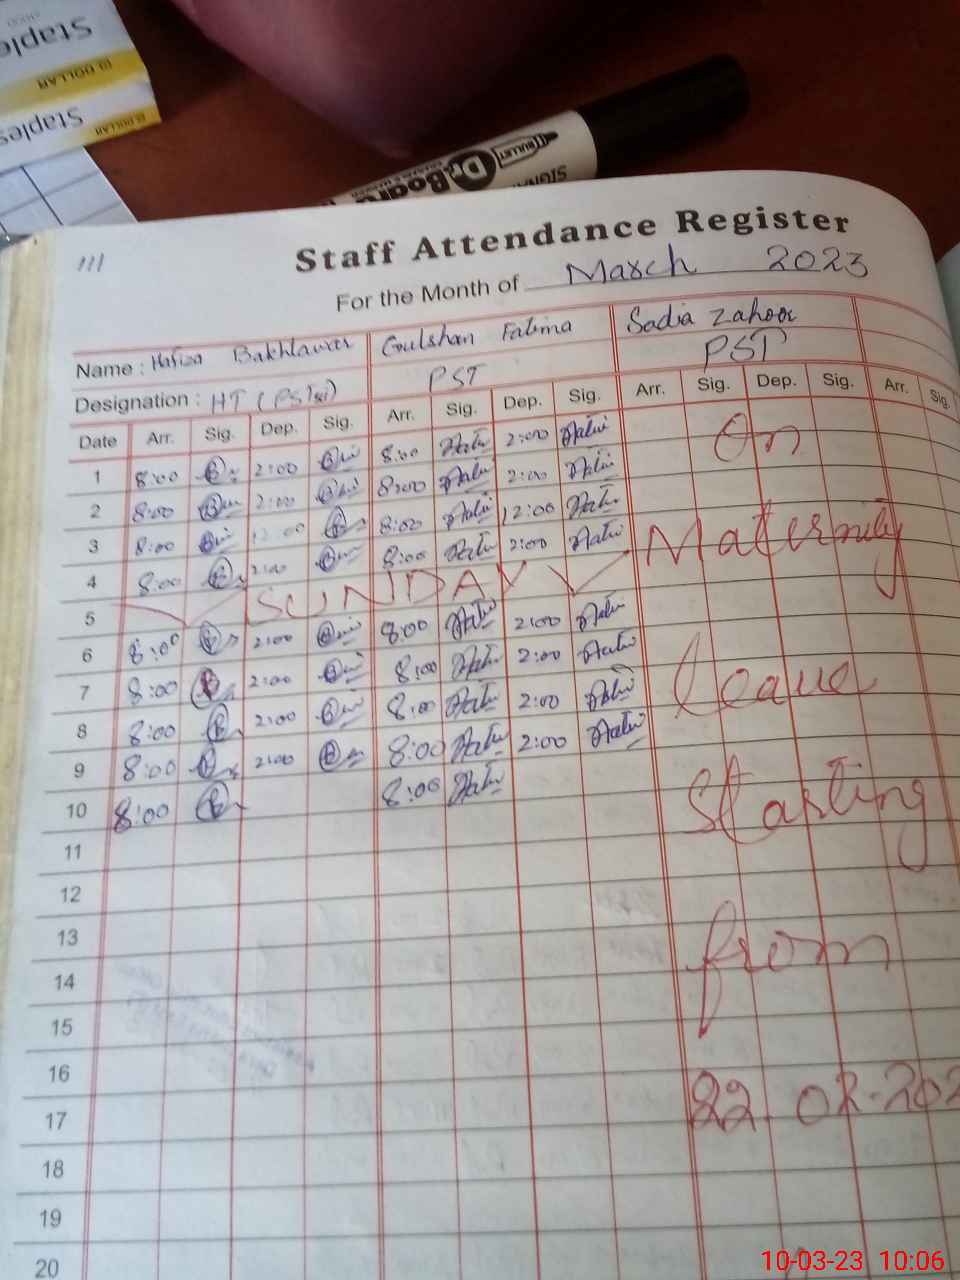 Staples
DOLLAR
Staples
DOLLAR
BULLET
Dr.Board
SIGNA
111
Staff Attendance Register
For the Month of March 2023
Name : Hafiza Bakhtawar Gulshan Fatima Sadia Zahoor
Designation : HT (PST) PST PST
Date Arr. Sig. Dep. Sig. Arr. Sig. Dep. Sig. Arr. Sig. Dep. Sig. Arr. Sig.
1 8:00 2:00 8:00 2:00 On
2 8:00 2:00 8:00 2:00
3 8:00 12:00 8:00 12:00 Maternity
4 8:00 2:00 8:00 2:00
5 SUNDAY
6 8:00 2:00 8:00 2:00
7 8:00 2:00 8:00 2:00 leave
8 8:00 2:00 8:00 2:00
9 8:00 2:00 8:00 2:00
10 8:00 8:00 Starting
11
12
13
14 from
15
16
17 22.02.202
18
19
20
10-03-23 10:06